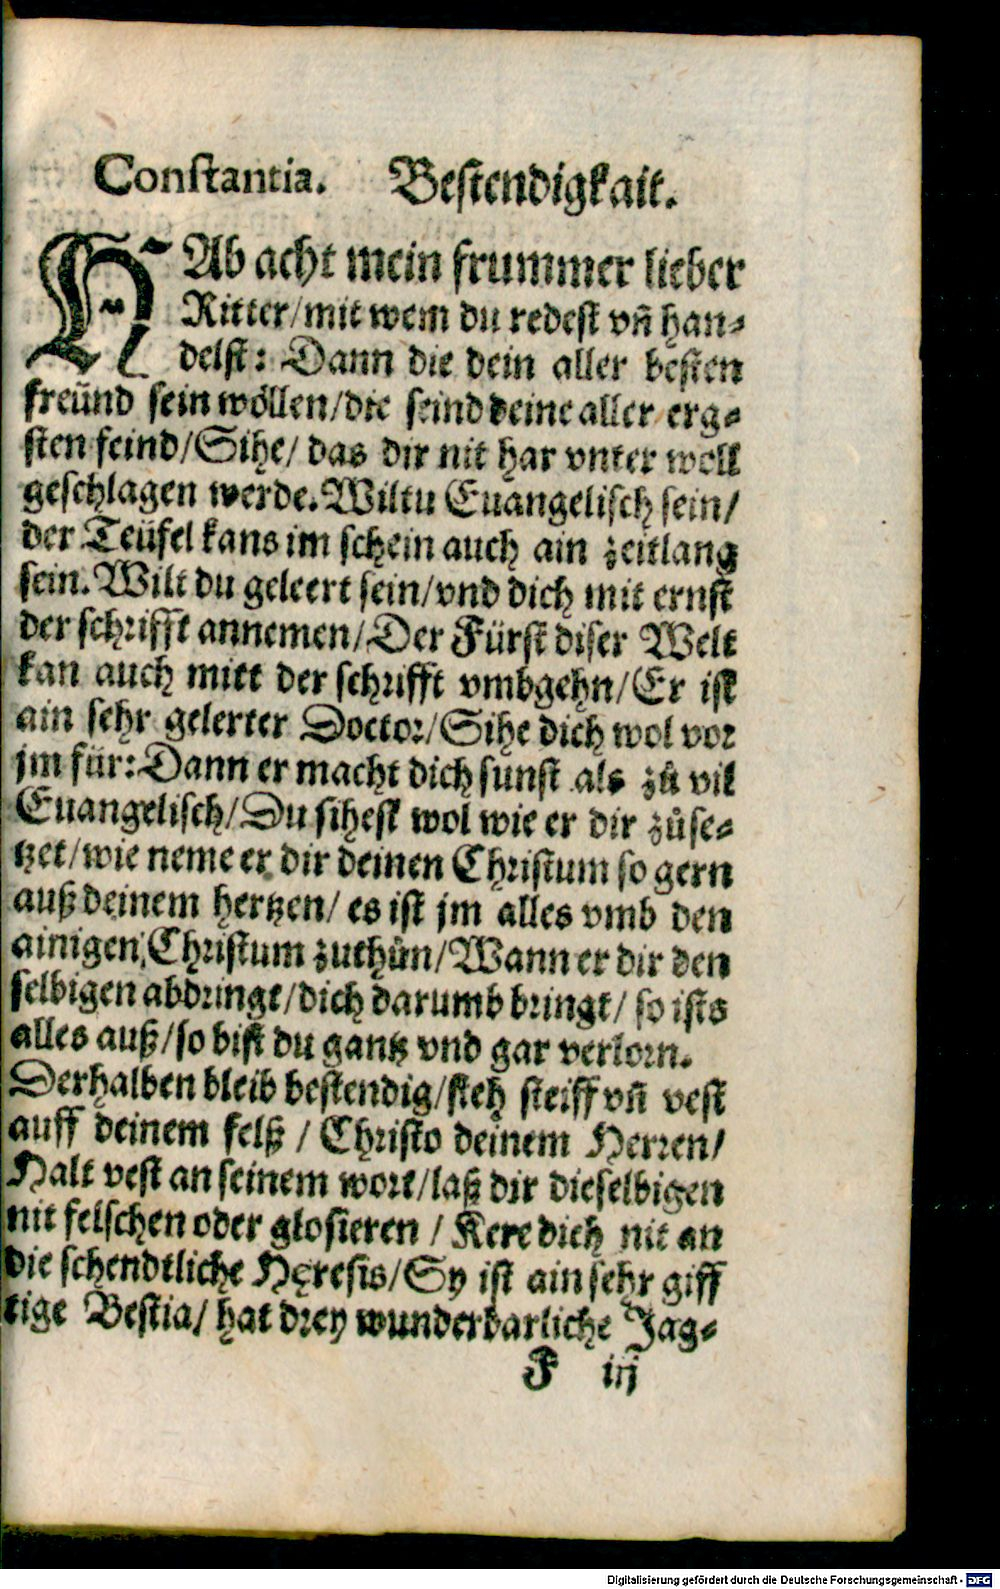 Constantia. Bestendigkait.
HAb acht mein frummer lieber
Ritter/mit wem du redest vñ han-
delst: Dann die dein aller besten
freünd sein wöllen/die seind deine aller erg-
sten feind/Sihe/ das dir nit har vnter woll
geschlagen werde. Wiltu Euangelisch sein/
der Teüfel kans im schein auch ain zeitlang
sein. Wilt du geleert sein/vnd dich mit ernst
der schrifft annemen/Der Fürst diser Welt
kan auch mitt der schrifft vmbgehn/Er ist
ain sehr gelerter Doctor/Sihe dich wol vor
jm für: Dann er macht dich sunst als zů vil
Euangelisch/Du sihest wol wie er dir zůse-
tzet/wie neme er dir deinen Christum so gern
auß deinem hertzen/ es ist jm alles vmb den
ainigen Christum zuthůn/Wann er dir den
selbigen abdringt/dich darumb bringt/ so ists
alles auß/so bist du gantz vnd gar verlorn.
Derhalben bleib bestendig/steh steiff vñ vest
auff deinem felß / Christo deinem Herren/
Halt vest an seinem wort/laß dir dieselbigen
nit felschen oder glosieren / Kere dich nit an
die schendtliche Hęresis/Sy ist ain sehr giff
tige Bestia/ hat drey wunderbarliche Jag-
F iij
Digitalisierung gefördert durch die Deutsche Forschungsgemeinschaft - DFG